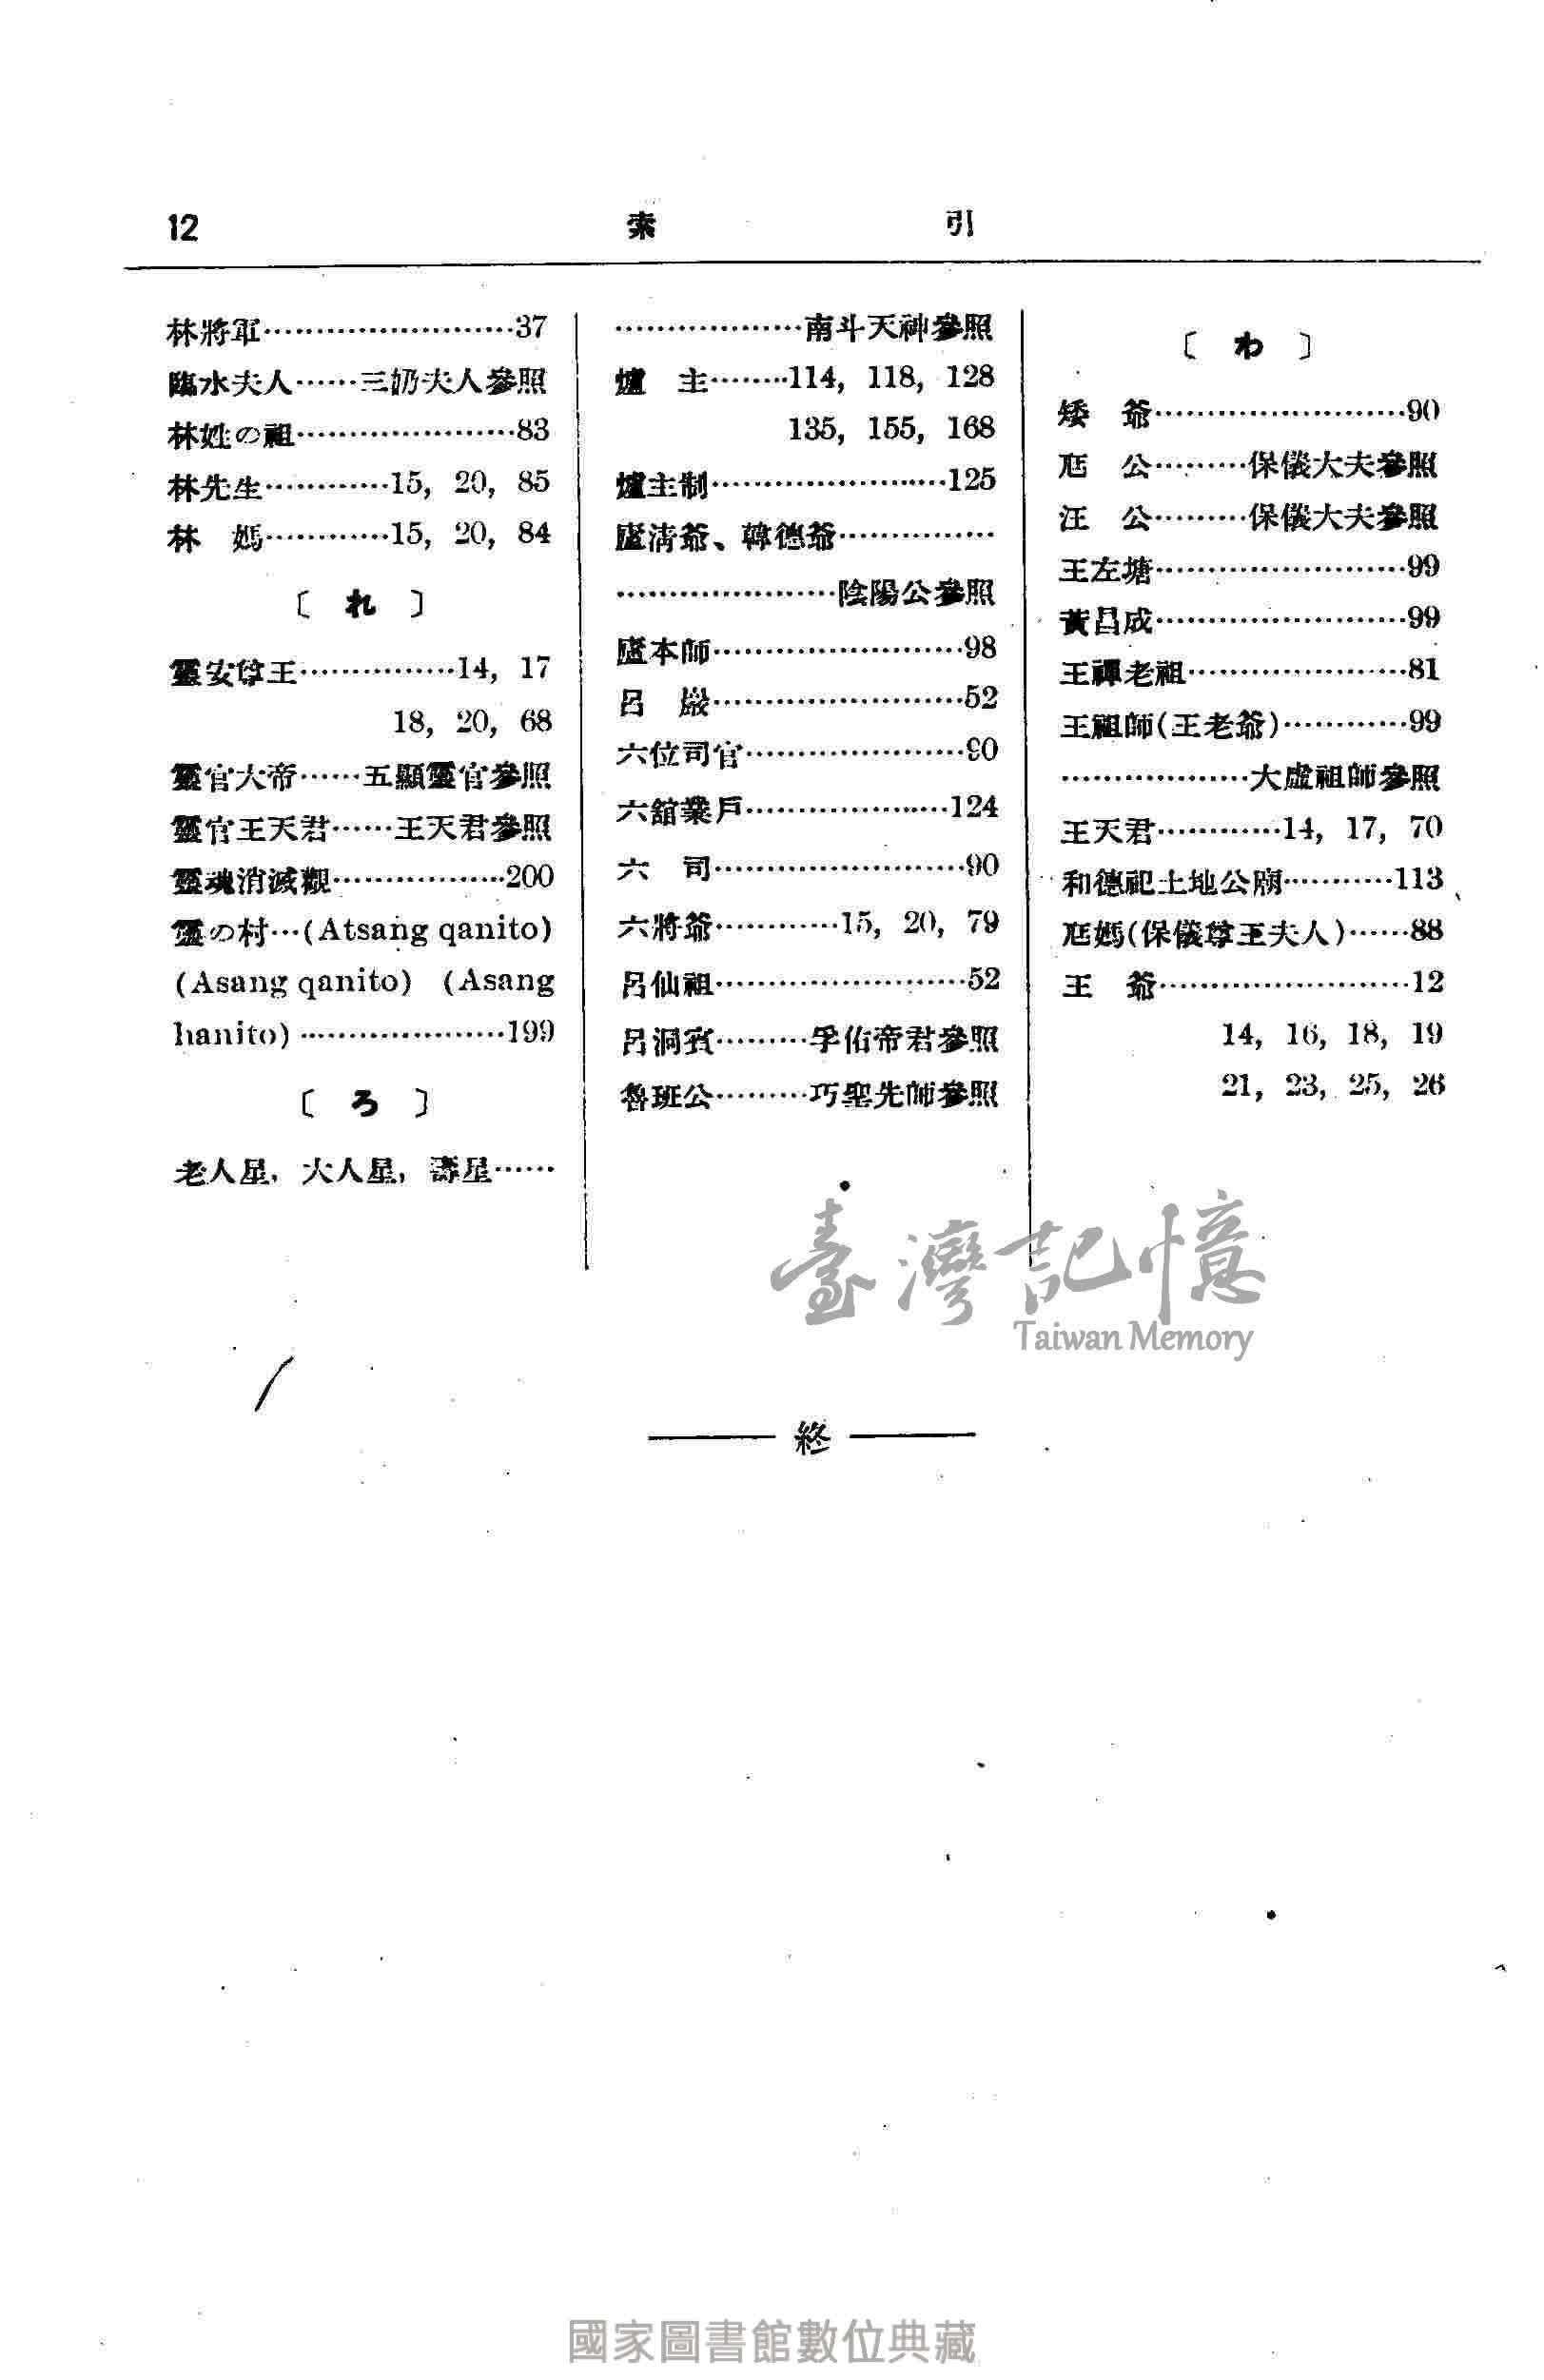 12 索引
林將軍………………………37
臨水夫人……三奶夫人參照
林姓の祖…………………83
林先生…………15, 20, 85
林 媽…………15, 20, 84
〔 れ 〕
靈安尊王……………14, 17
18, 20, 68
靈官大帝……五顯靈官參照
靈官王天君……王天君參照
靈魂消滅觀………………200
靈の村…(Atsang qanito)
(Asang qanito) (Asang
hanito)…………………199
〔 ろ 〕
老人星, 大人星, 壽星……
………………南斗天神參照
爐 主………114, 118, 128
135, 155, 168
爐主制……………………125
盧清爺、韓德爺……………
…………………陰陽公參照
盧本師……………………98
呂 巖……………………52
六位司官…………………90
六舘業戶…………………124
六 司……………………90
六將爺…………15, 20, 79
呂仙祖……………………52
呂洞賓………孚佑帝君參照
魯班公………巧聖先師參照
〔 わ 〕
矮 爺……………………90
尫 公………保儀大夫參照
汪 公………保儀大夫參照
王左塘……………………99
黃昌成……………………99
王禪老祖…………………81
王祖師(王老爺)…………99
………………大虛祖師參照
王天君…………14, 17, 70
和德祀土地公廟…………113
尫媽(保儀尊王夫人)……88
王 爺……………………12
14, 16, 18, 19
21, 23, 25, 26
臺灣記憶
Taiwan Memory
終
國家圖書館數位典藏